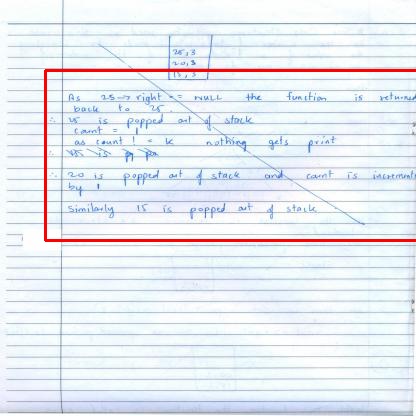 25,3
20,3
15,3
As 25 → right == NULL the function is returned
back to 25.
∴ 25 is popped out of stack
count = 1
as count != k nothing gets print
∴ 20 is popped out of stack and count is increment
by 1
Similarly 15 is popped out of stack